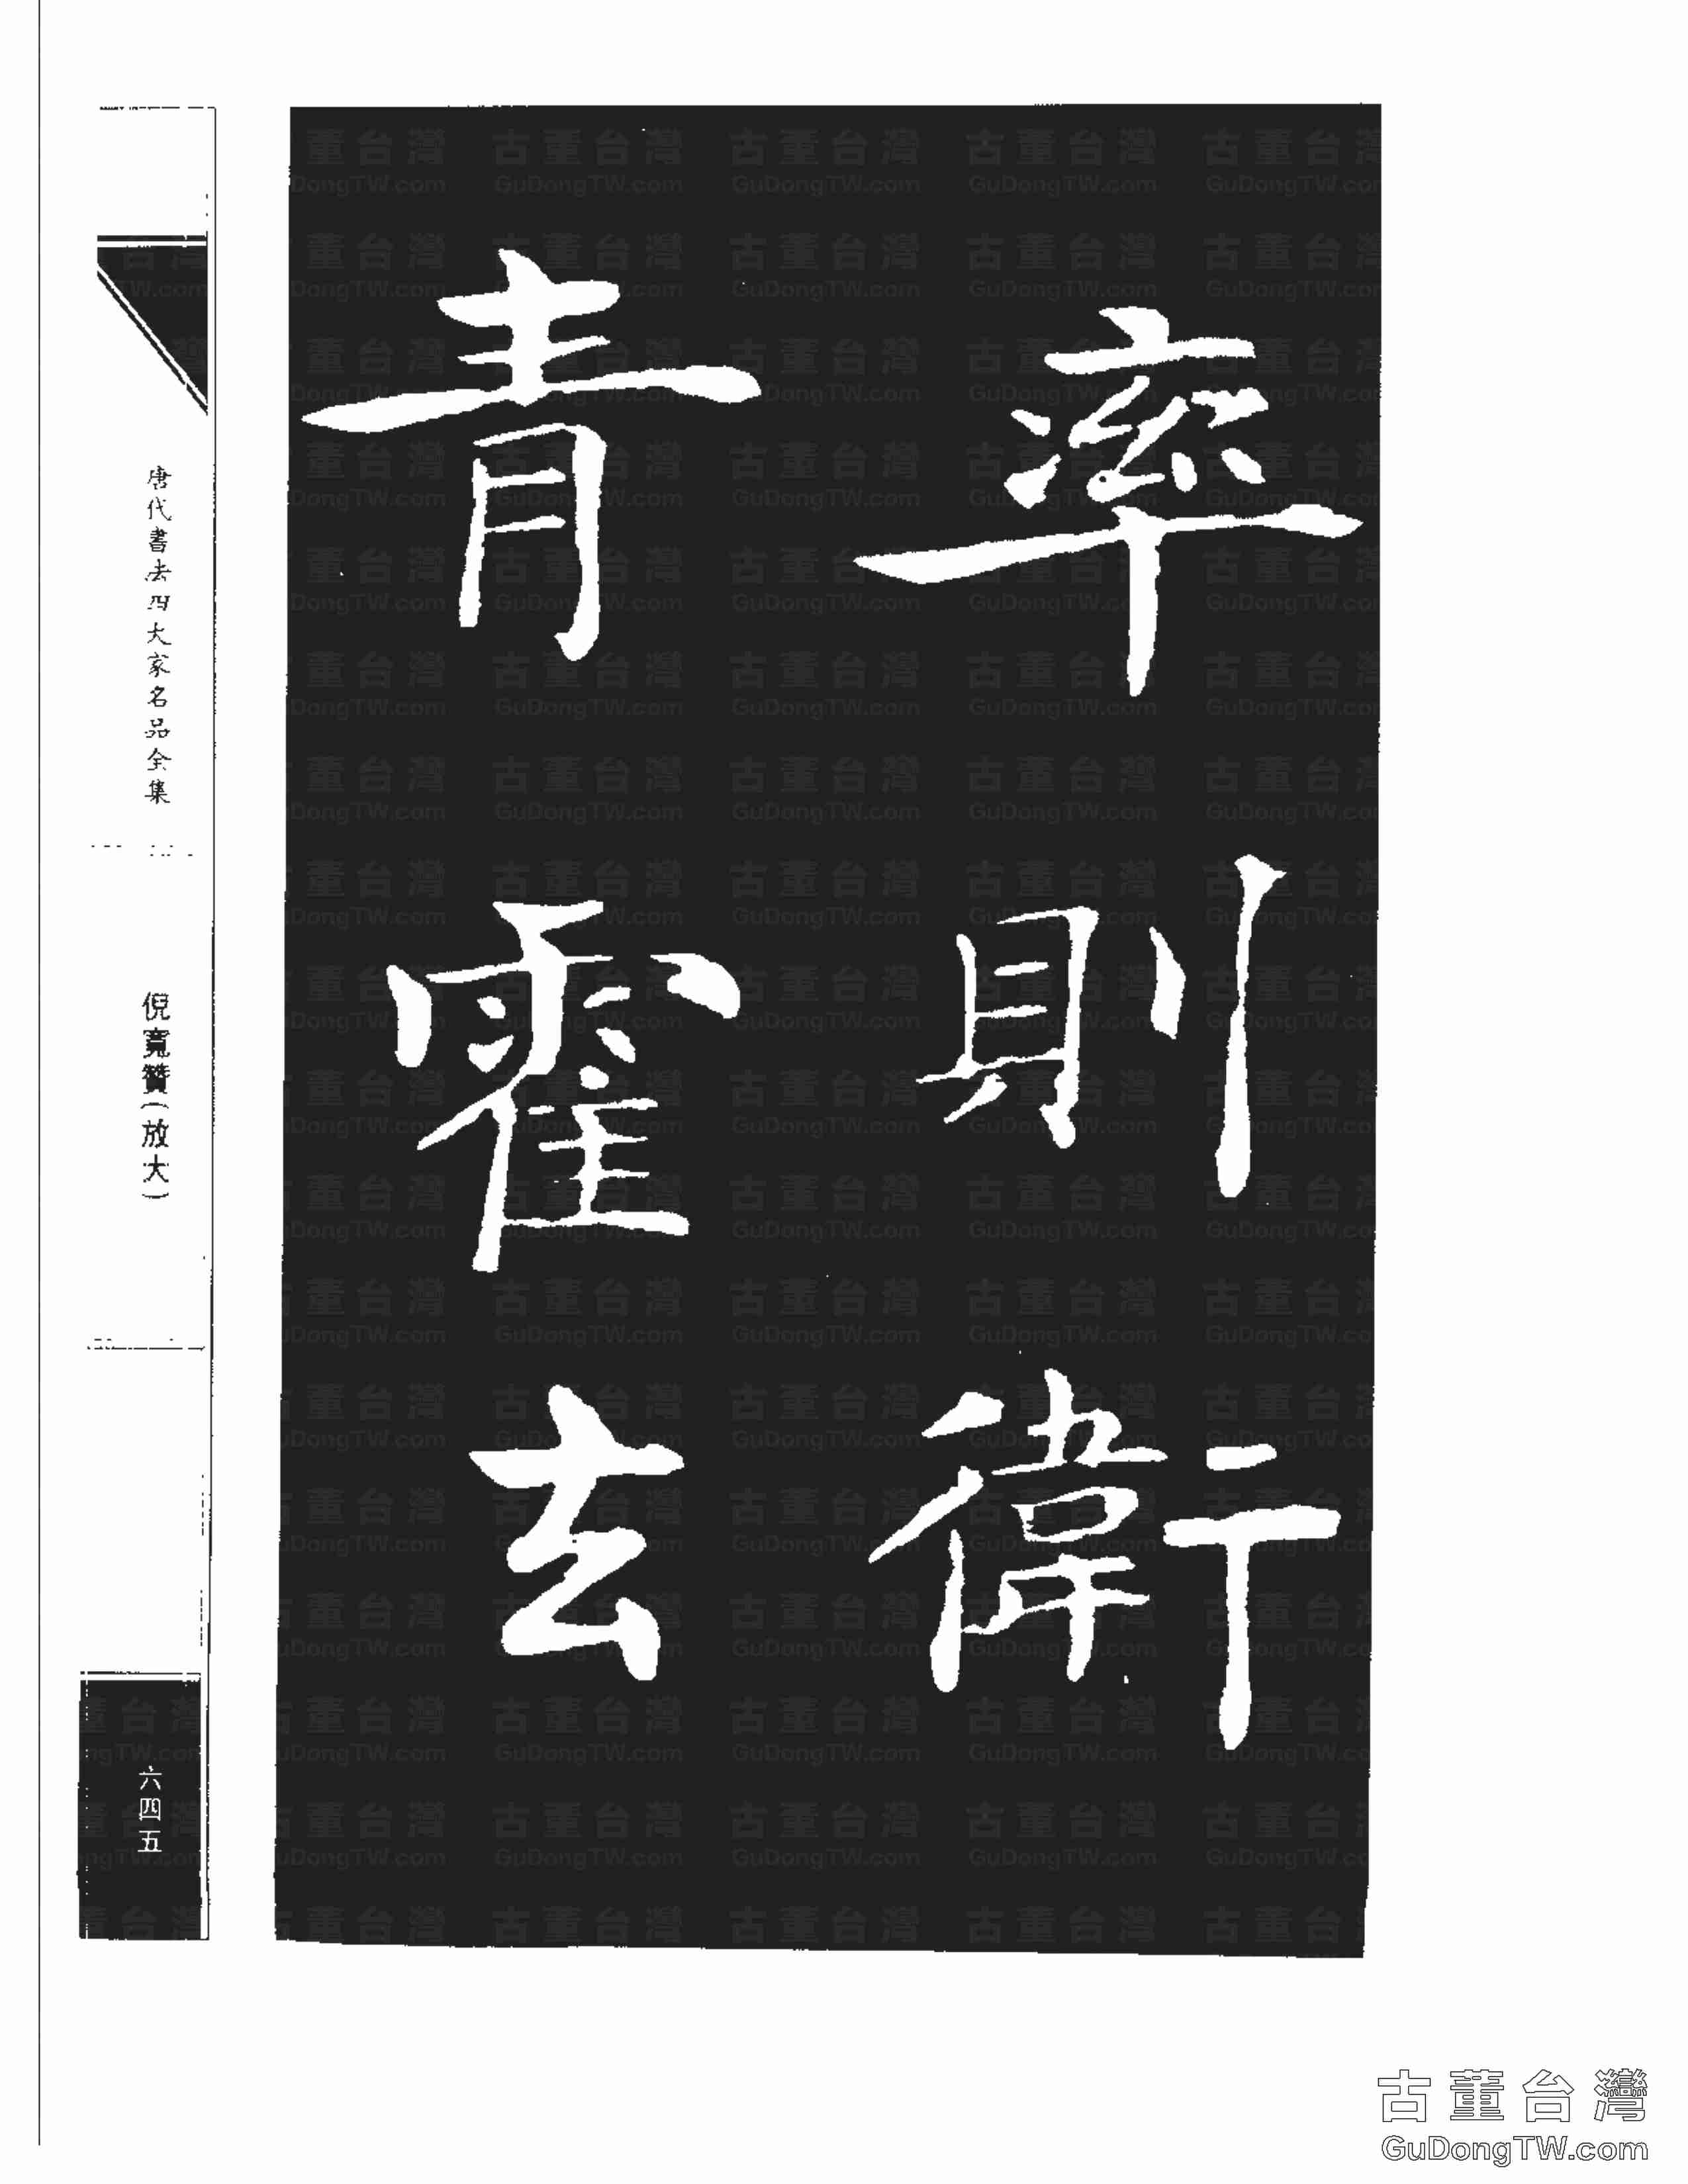 率則衛
青霍玄
唐代書法四大家名品全集
倪寬贊(放大)
六四五
古董台灣
GuDongTW.com